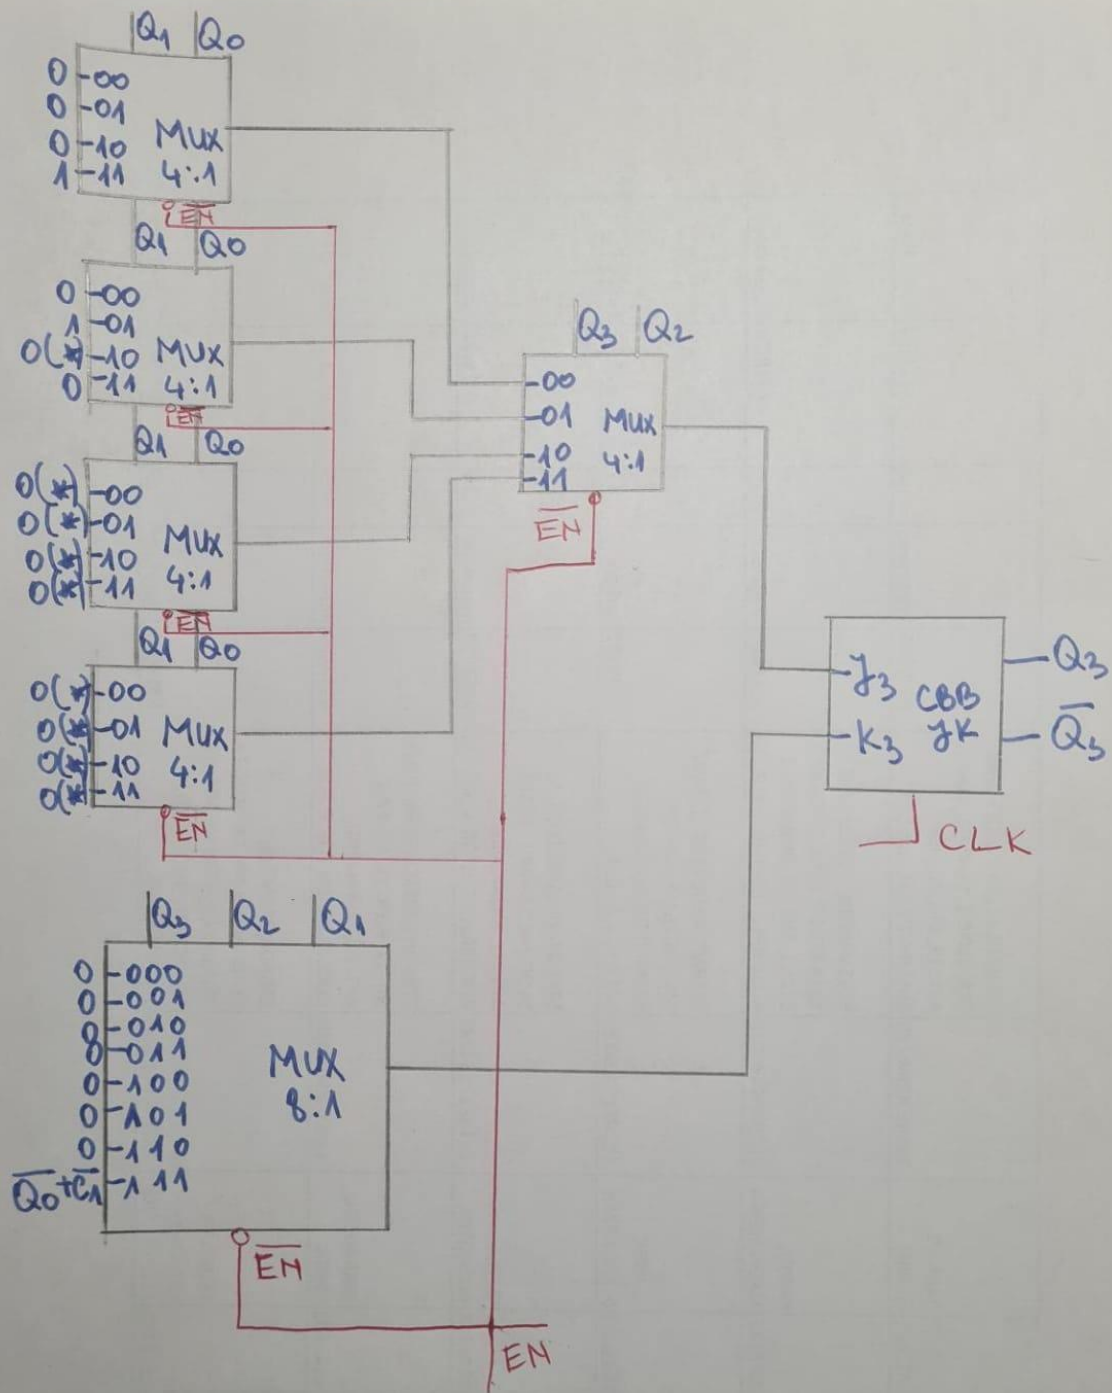 Q1 Q0
0 00
0 01
0 10
1 11
MUX
4:1
EN
Q1 Q0
0 00
1 01
0(*) 10
0 11
MUX
4:1
EN
Q1 Q0
0(*) 00
0(*) 01
0(*) 10
0(*) 11
MUX
4:1
EN
Q1 Q0
0(*) 00
0(*) 01
0(*) 10
0(*) 11
MUX
4:1
EN
Q3 Q2
00
01
10
11
MUX
4:1
EN
J3
K3
CBB
JK
Q3
Q3
CLK
Q3 Q2 Q1
0 000
0 001
0 010
0 011
0 100
0 101
0 110
Q0+C1 111
MUX
8:1
EN
EN